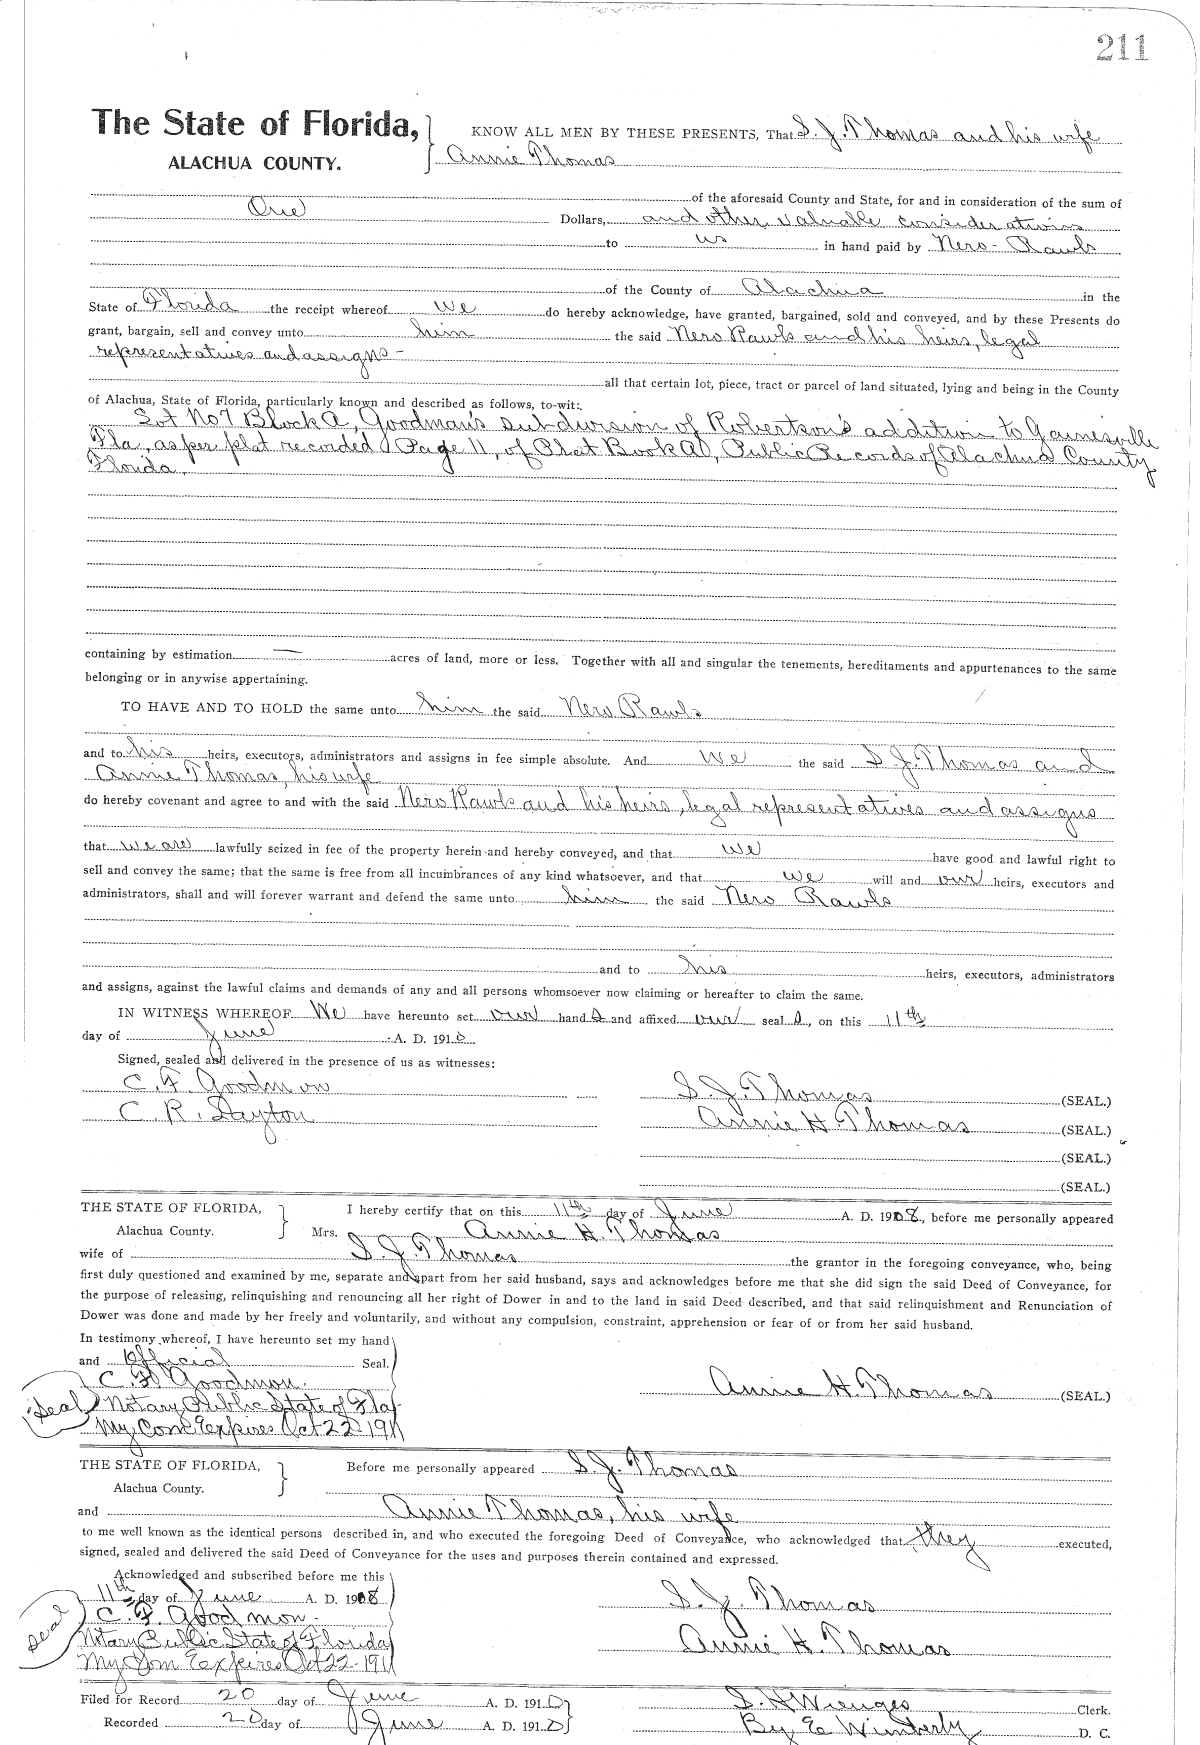 211
The State of Florida,
ALACHUA COUNTY.
KNOW ALL MEN BY THESE PRESENTS, That S. J. Thomas and his wife
Annie Thomas
of the aforesaid County and State, for and in consideration of the sum of
One Dollars, and other valuable considerations
to us in hand paid by Nero Rawls
of the County of Alachua in the
State of Florida the receipt whereof we do hereby acknowledge, have granted, bargained, sold and conveyed, and by these Presents do
grant, bargain, sell and convey unto him the said Nero Rawls and his heirs, legal
representatives and assigns -
all that certain lot, piece, tract or parcel of land situated, lying and being in the County
of Alachua, State of Florida, particularly known and described as follows, to-wit:
Lot No 7 Block A, Goodman's subdivision of Robertson's addition to Gainesville
Fla, as per plat recorded Page 11, of Plat Book A, Public Records of Alachua County
Florida.
containing by estimation — acres of land, more or less. Together with all and singular the tenements, hereditaments and appurtenances to the same
belonging or in anywise appertaining.
TO HAVE AND TO HOLD the same unto him the said Nero Rawls
and to his heirs, executors, administrators and assigns in fee simple absolute. And We the said S. J. Thomas and
Annie Thomas, his wife
do hereby covenant and agree to and with the said Nero Rawls and his heirs, legal representatives and assigns
that we are lawfully seized in fee of the property herein and hereby conveyed, and that we have good and lawful right to
sell and convey the same; that the same is free from all incumbrances of any kind whatsoever, and that we will and our heirs, executors and
administrators, shall and will forever warrant and defend the same unto him the said Nero Rawls
and to his heirs, executors, administrators
and assigns, against the lawful claims and demands of any and all persons whomsoever now claiming or hereafter to claim the same.
IN WITNESS WHEREOF We have hereunto set our hand s and affixed our seal s, on this 11th
day of June A. D. 1910
Signed, sealed and delivered in the presence of us as witnesses:
C. F. Goodmon S. J. Thomas (SEAL.)
C. R. Layton Annie H. Thomas (SEAL.)
(SEAL.)
(SEAL.)
THE STATE OF FLORIDA, I hereby certify that on this 11th day of June A. D. 1908, before me personally appeared
Alachua County. Mrs. Annie H. Thomas
wife of S. J. Thomas the grantor in the foregoing conveyance, who, being
first duly questioned and examined by me, separate and apart from her said husband, says and acknowledges before me that she did sign the said Deed of Conveyance, for
the purpose of releasing, relinquishing and renouncing all her right of Dower in and to the land in said Deed described, and that said relinquishment and Renunciation of
Dower was done and made by her freely and voluntarily, and without any compulsion, constraint, apprehension or fear of or from her said husband.
In testimony whereof, I have hereunto set my hand
and Official Seal.
C. F. Goodmon. Annie H. Thomas (SEAL.)
Seal Notary Public State of Fla
My Com Expires Oct 22 1911
THE STATE OF FLORIDA, Before me personally appeared S. J. Thomas
Alachua County.
and Annie Thomas, his wife
to me well known as the identical persons described in, and who executed the foregoing Deed of Conveyance, who acknowledged that they executed,
signed, sealed and delivered the said Deed of Conveyance for the uses and purposes therein contained and expressed.
Acknowledged and subscribed before me this
11th day of June A. D. 1908 S. J. Thomas
C. F. Goodmon.
Seal Notary Public State of Florida Annie H. Thomas
My Com Expires Oct 22-1911
Filed for Record 20 day of June A. D. 1910 S. H Wienges Clerk.
Recorded 20 day of June A. D. 1910 By E Wimberly D. C.